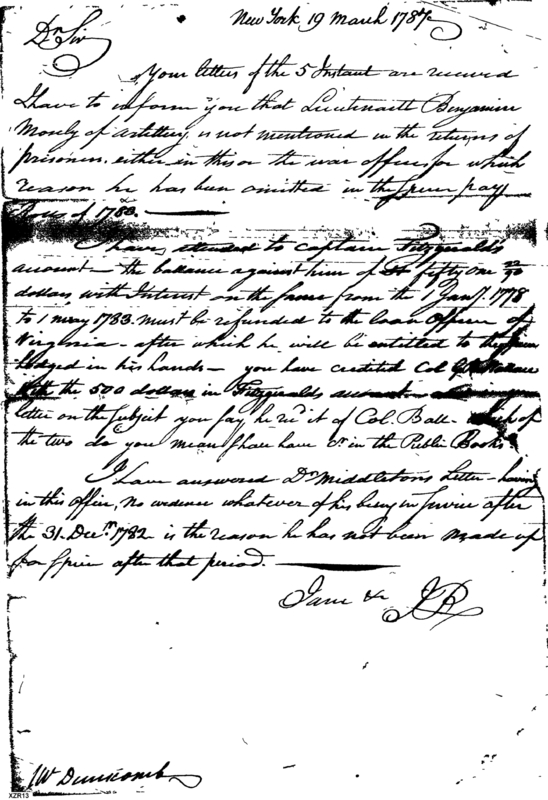 New York 19 March 1787
Dr Sir
Your letters of the 5 Instant are received
I have to inform you that Lieutenant Benjamin
Mosely of artillery is not mentioned in the returns of
prisoners either in this or the war office, for which
reason he has been omitted in the
Rolls of 1783.
I have attended to Captain Fitzgerald's
account - the ballance against him of fifty one 22/90
dollars with Interest on the same from the 1 Jany. 1778
to 1 may 1783 must be refunded to the loan Officer of
Virginia - after which he will be entitled to the
lodged in his hands - you have credited Col
with the 500 dollars in Fitzgeralds account
letter on the subject you say he recd it of Col. Ball - which of
the two do you mean shall have Cr in the Public Books
I have answered Dr Middletons Letter - having
in this office, no evidence whatever of his being in service after
the 31. Decr. 1782 is the reason he has not been made up
for after that period.
I am &c JP
W Dunscomb
XZR13